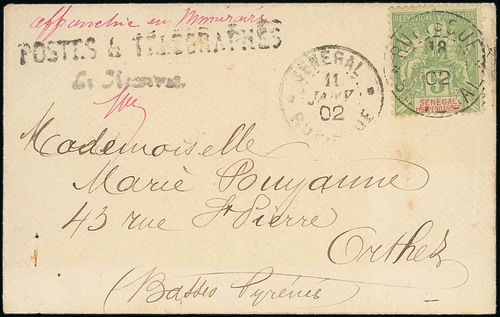 affranchie en Numéraire
POSTES & TÉLÉGRAPHES
Le Receveur
SENEGAL
11
JANV
02
RUFISQUE
RUFISQUE
18
02
SÉNÉGAL
Mademoiselle
Marie Puyanne
43 rue St Pierre
Orthez
(Basses Pyrénées